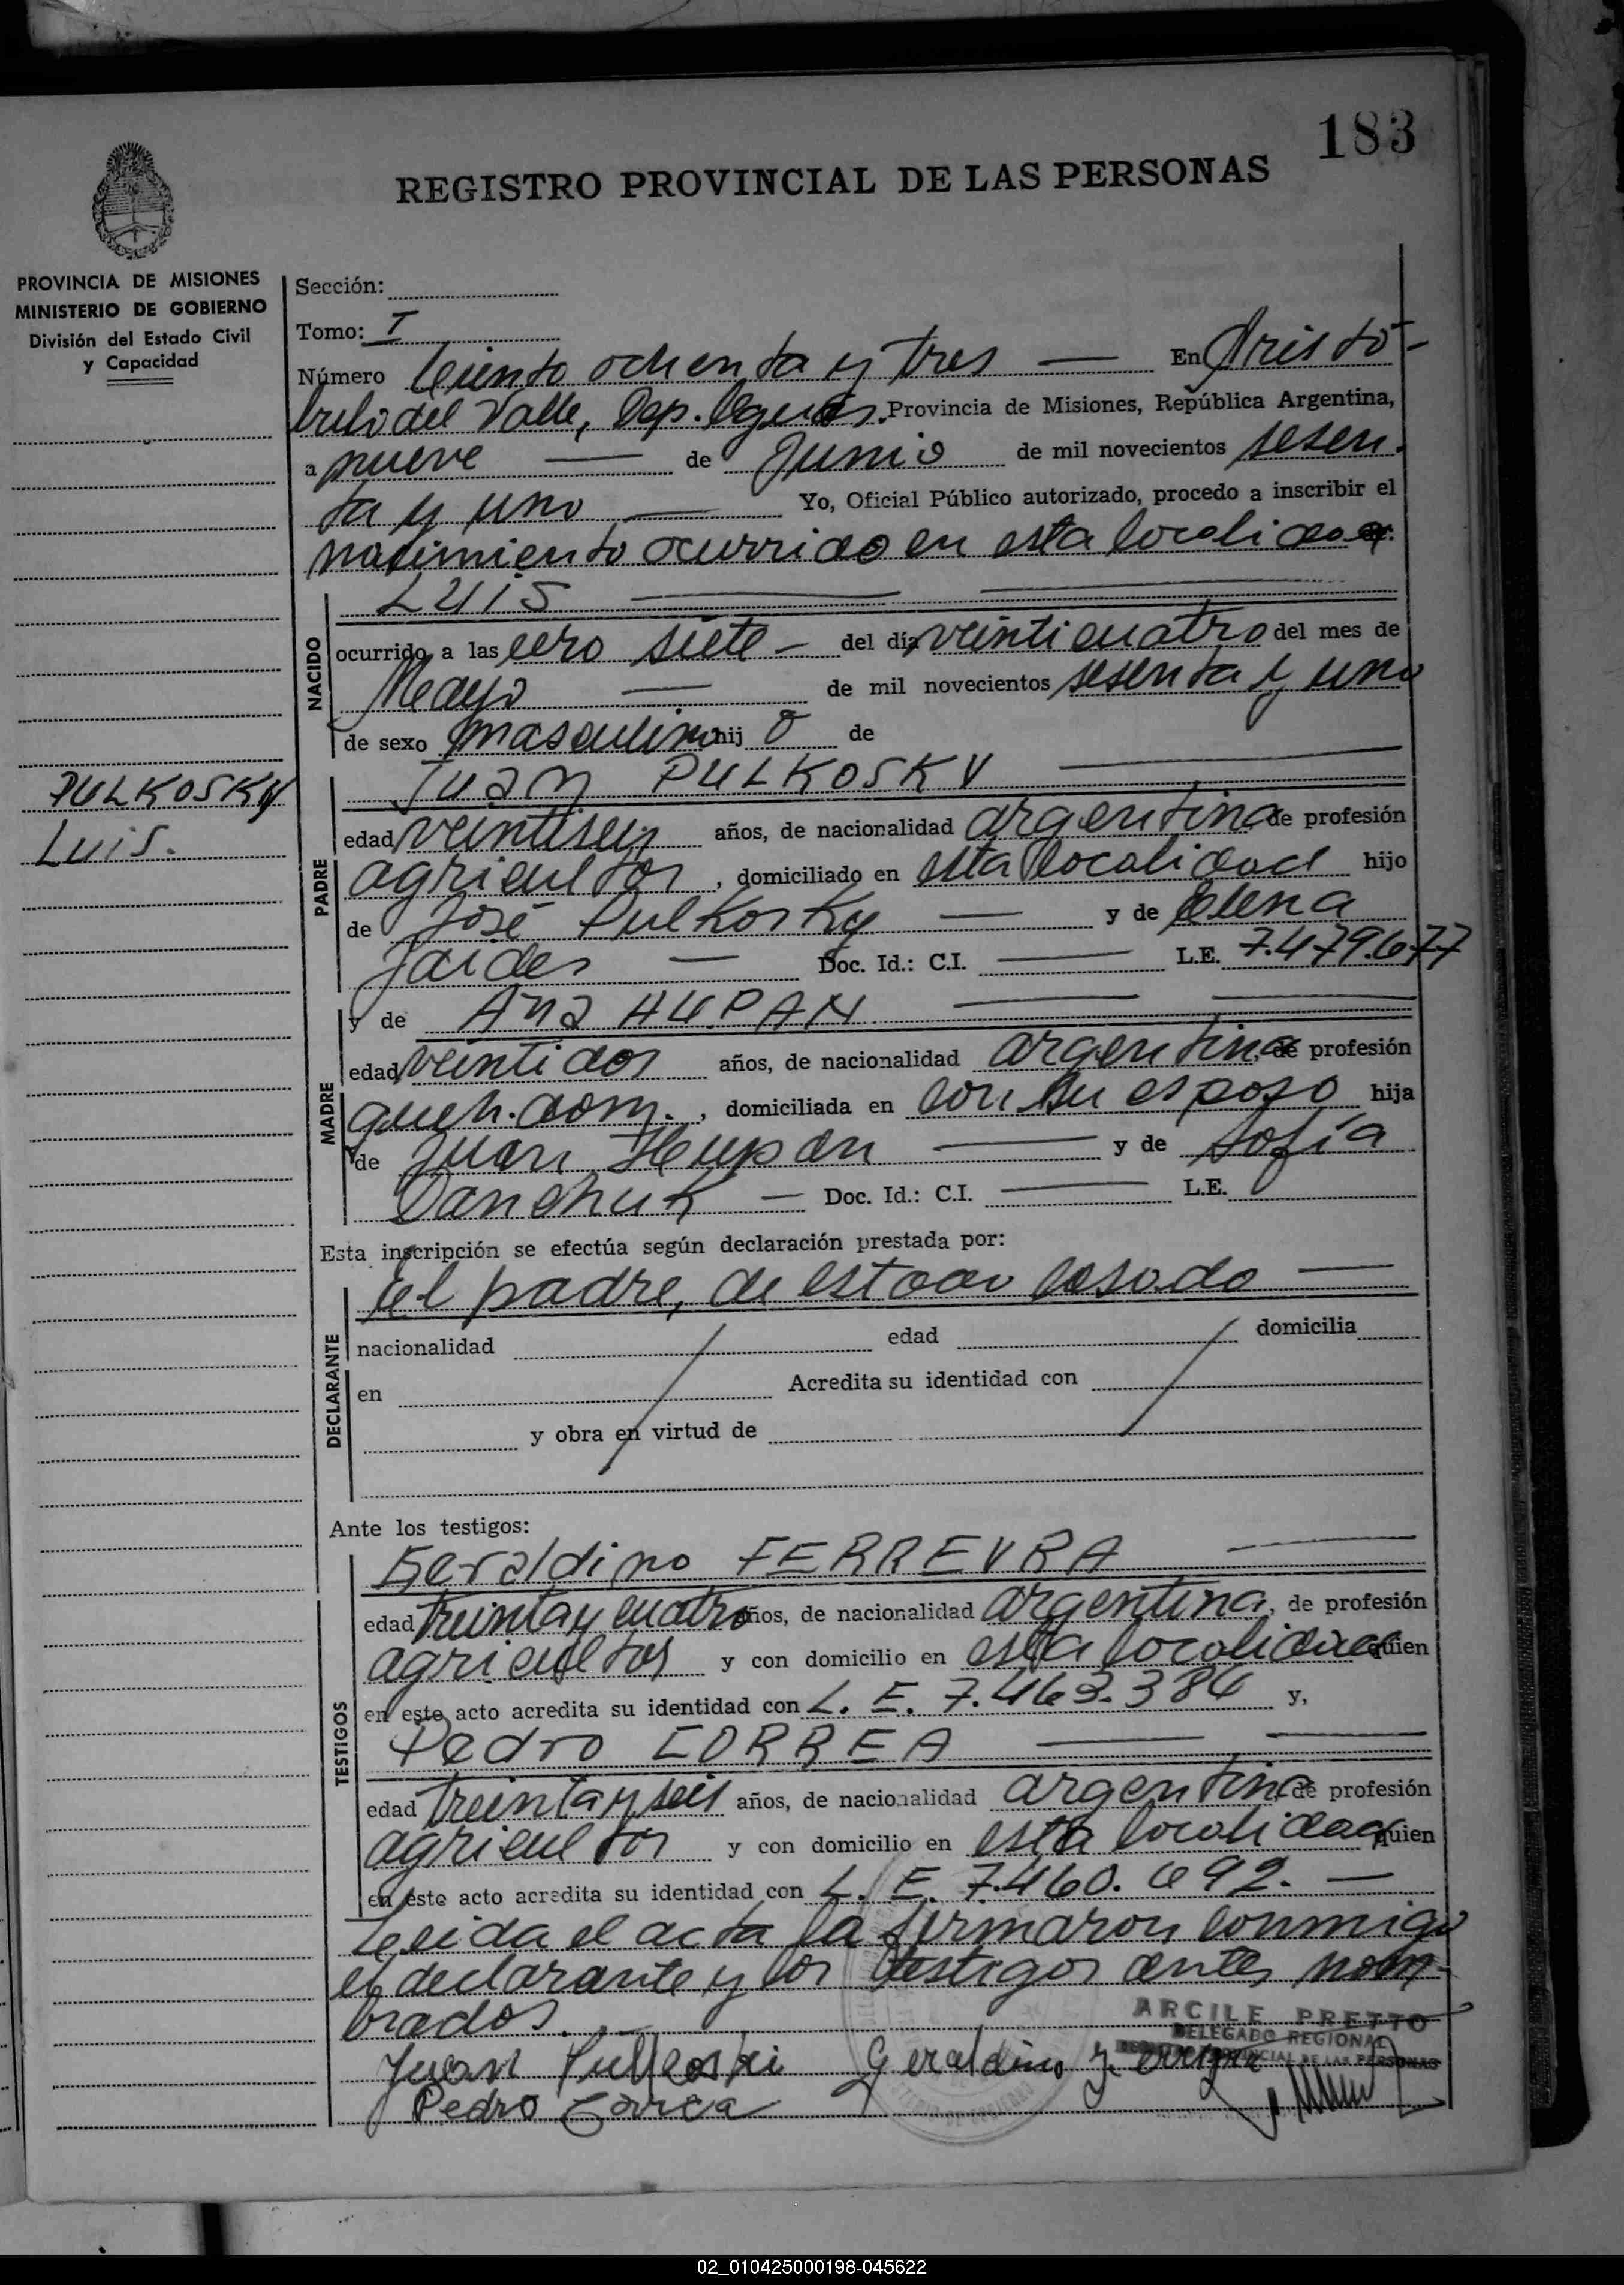 183
REGISTRO PROVINCIAL DE LAS PERSONAS
PROVINCIA DE MISIONES
MINISTERIO DE GOBIERNO
División del Estado Civil
y Capacidad
Sección:
Tomo: I
Número Ciento ochenta y tres — En Aristó-
bulo del Valle, Dep. Provincia de Misiones, República Argentina,
a nueve — de Junio de mil novecientos sesen-
ta y uno — Yo, Oficial Público autorizado, procedo a inscribir el
nacimiento ocurrido en esta localidad.
NACIDO
LUIS —
ocurrido a las cero siete — del día veinticuatro del mes de
Mayo — de mil novecientos sesenta y uno
de sexo masculino hij o de
PULKOSKY
Luis.
PADRE
Juan PULKOSKY —
edad veintiseis años, de nacionalidad argentina de profesión
agricultor, domiciliado en esta localidad hijo
de José Pulkosky — y de Elena
— Doc. Id.: C.I. — L.E. 7.479.677
MADRE
y de Ana HUPAN —
edad veintidos años, de nacionalidad argentina, de profesión
queh. dom., domiciliada en con su esposo hija
de Juan Hupan — y de Sofía
Danchuk — Doc. Id.: C.I. — L.E.
Esta inscripción se efectúa según declaración prestada por:
DECLARANTE
el padre, de estado casado —
nacionalidad edad domicilia
en Acredita su identidad con
y obra en virtud de
Ante los testigos:
TESTIGOS
Geraldino FERREYRA —
edad treinta y cuatro años, de nacionalidad argentina, de profesión
agricultor y con domicilio en esta localidad quien
en este acto acredita su identidad con L. E. 7.463.386 y,
Pedro CORREA —
edad treinta y seis años, de nacionalidad argentina de profesión
agricultor y con domicilio en esta localidad quien
en este acto acredita su identidad con L. E. 7.460.692. —
Leida el acta la firmaron conmigo
el declarante y los testigos antes nom-
brados. —
ARCILE PRETTO
DELEGADO REGIONAL
REGISTRO PROVINCIAL DE LAS PERSONAS
Juan Pulkoski Geraldino Ferreyra
Pedro Correa
02_010425000198-045622